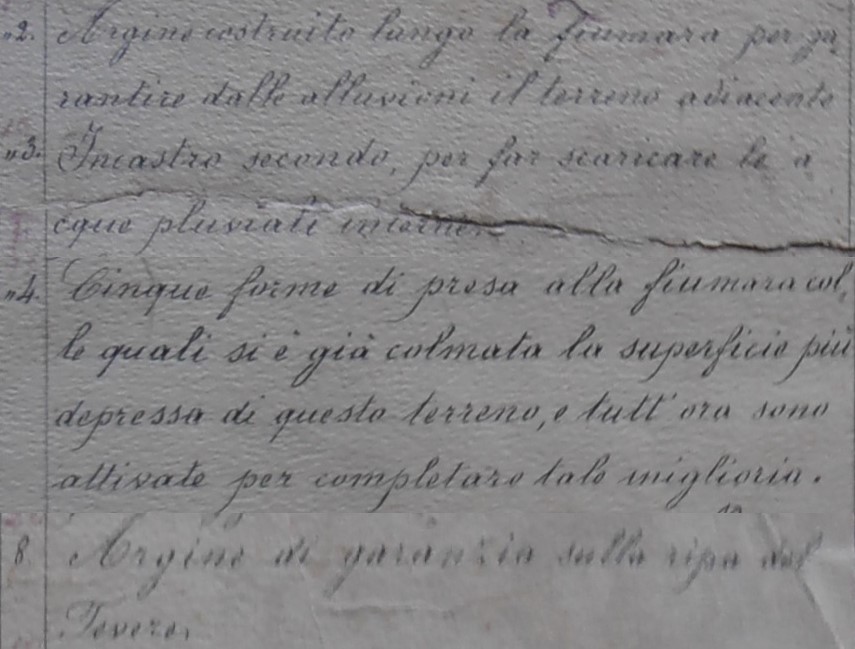 "2. Argine costruito lungo la fiumara per ga,
rantire dalle alluvioni il terreno adiacente
"3. Incastro secondo, per far scaricare le a
cque pluviali interne.
"4. Cinque forme di presa alla fiumara col,
le quali si è già colmata la superficie più
depressa di questo terreno, e tutt'ora sono
attivate per completare tale miglioria.
8. Argine di garanzia sulla ripa del
Tevere,